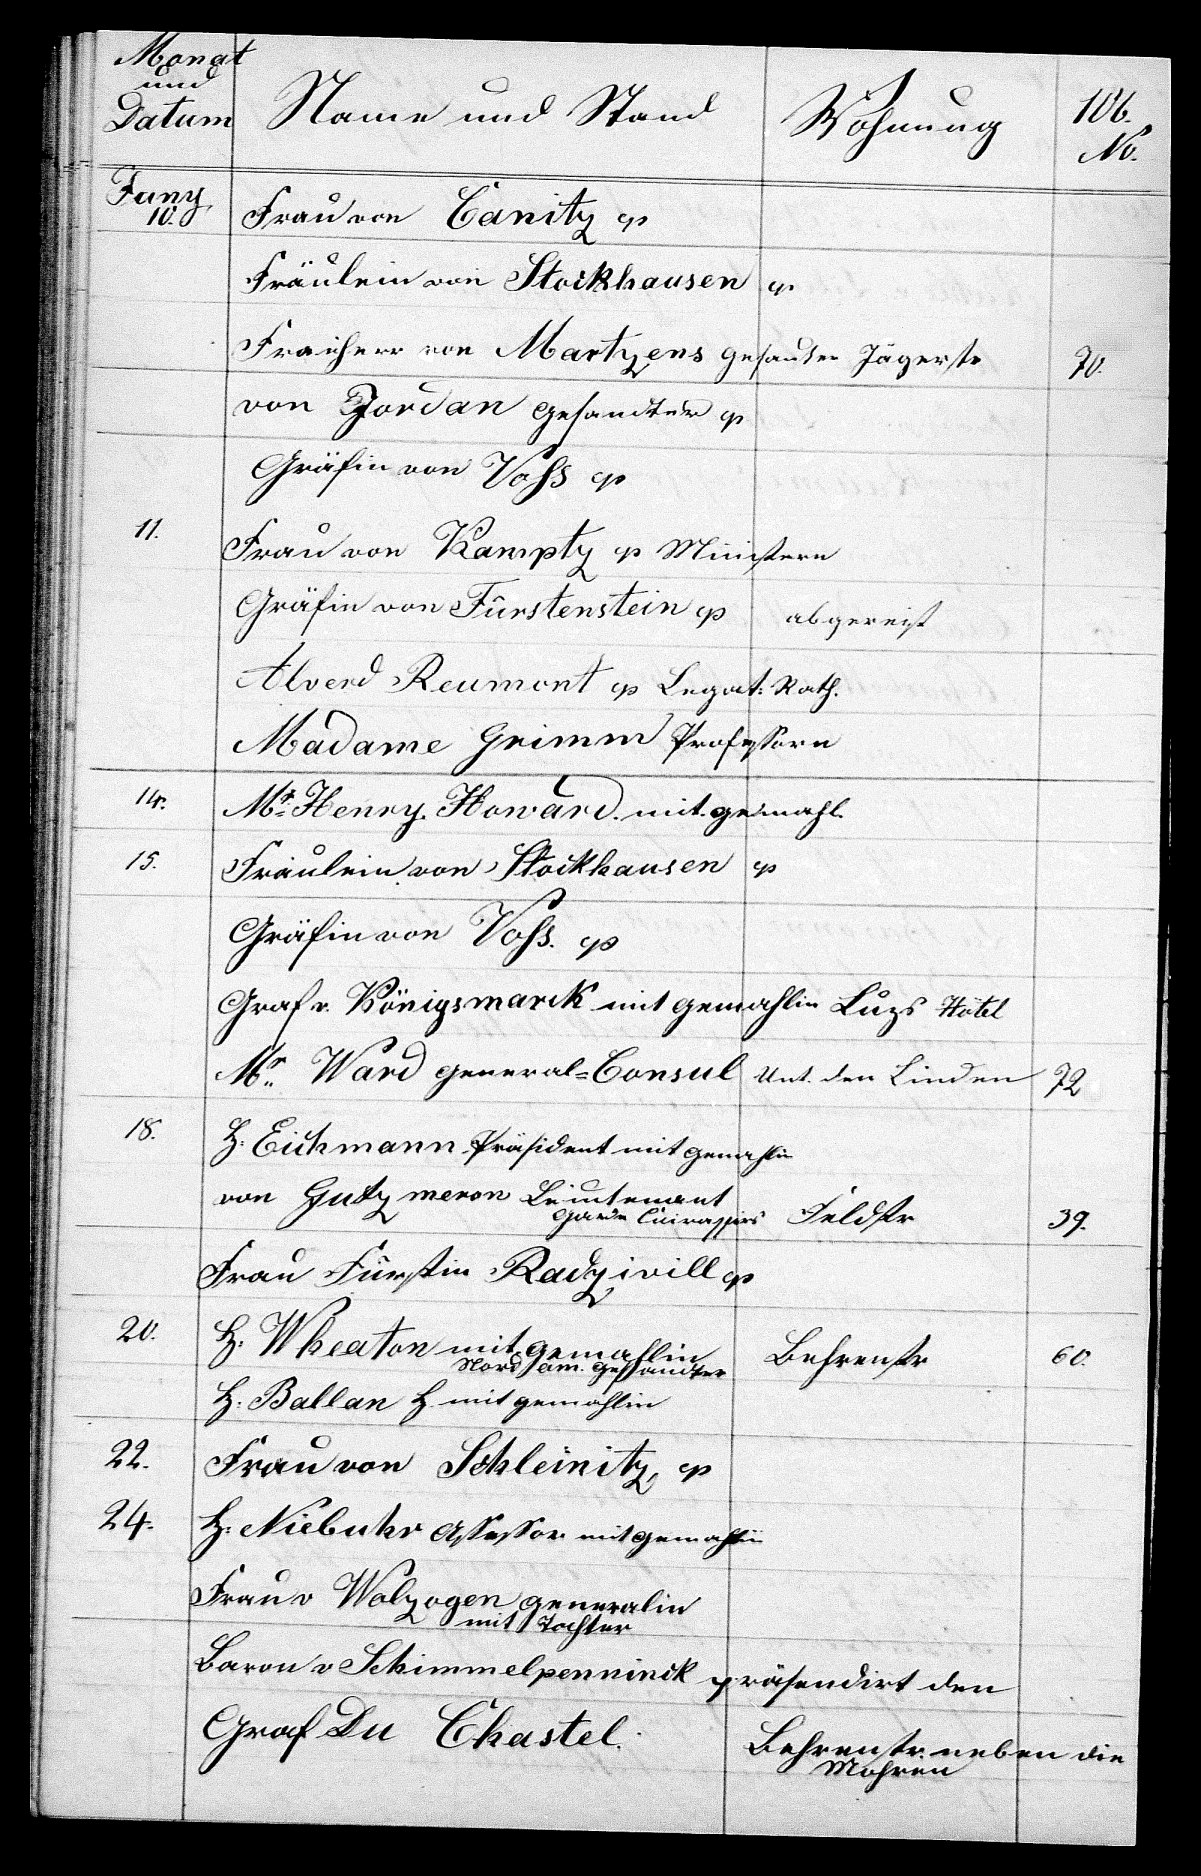 Monat und Datum Name und Stand Wohnung 106. No.
Juny 10. Frau von Canitz
Fräulein von Stockhausen
Freiherr von Martzens gesandter Jägerstr 70.
von Jordan gesandter
Gräfin von Voſs
11. Frau von Kamptz Ministern
Gräfin von Fürstenstein abgereist
Alverd Reumont Legat: Rath.
Madame Grimm Professorn
14. Mr. Henry. Howard. mit gemahl.
15. Fräulein von Stockhausen
Gräfin von Voſs.
Graf v. Königsmarck mit gemahlin Luzs Hôtel
Mr. Ward general=Consul Unt. den Linden 72
18. H: Eichmann Präsident mit gemahlin
von Gutzmeron Lieutenant
Garde Cuirassirs Feldstr 39.
Frau Fürstin Radziwill
20. H: Wheaton mit gemahlin Behrenstr 60.
Nord am. gesandter
H: Ballan H. mit gemahlin
22. Frau von Schleinitz,
24. H: Niebuhr Assessor mit gemahlin
Frau v Wolzogen generalin
mit Tochter
Baron v Schimmelpenninck präsendirt den
Graf Du Chastel. Behrenstr. neben die
Mohren